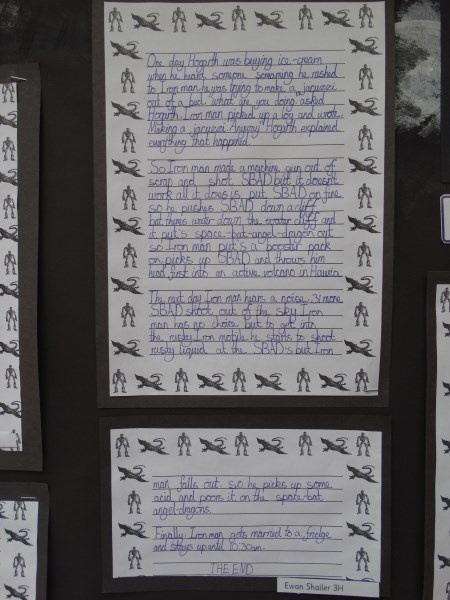 One day Hogarth was buying ice-cream
when he heard someone screaming he rushed
to Iron man he was trying to make a jacuzzi
out of a bed. what are you doing asked
Hogarth. Iron man picked up a log and wrote
Making a jacuzzi. Anyway Hogarth explained
everything that happened.
So Iron man made a machine gun out of
scrap and shot SBAD but it doesn't
work all it does is put SBAD on fire
so he pushes SBAD down a cliff
but theres water down the water cliff and
it put's space-bat-angel-dragon out
so Iron man put's a booster pack
on picks up SBAD and throws him
head first into an active volcano in
The next day Iron man hears a noise 31 more
SBAD shoot out of the sky Iron
man has no choice but to get into
the rusty Iron mobile he starts to shoot
rusty liquid at the SBAD's but Iron
man falls out. so he picks up some
acid and poors it on the space-bat
angel-dragons.
Finally Iron man gets married to a fridge
and stays up until 10:30am.
THE END
Ewan Shailer 3H